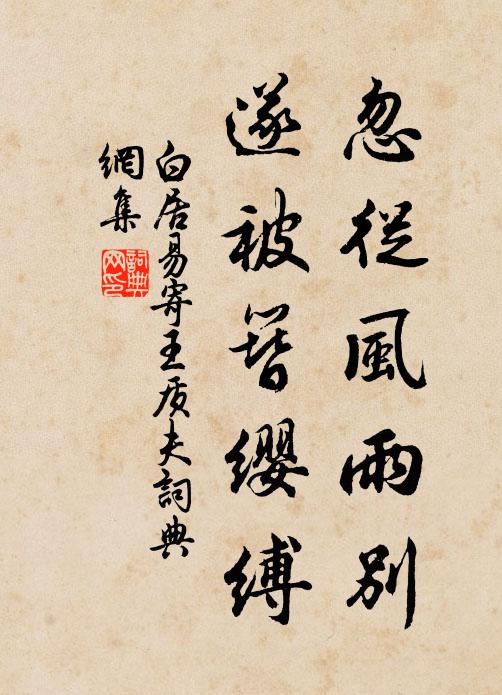 忽從風雨别
遂被簪纓縛
白居易寄王质夫詞典
網集
詞典
网印